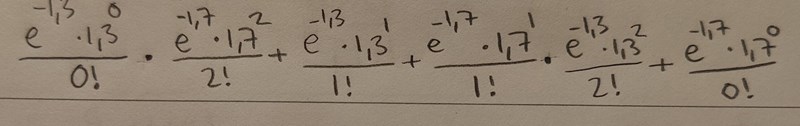 e^{-1,3} · 1,3^0 / 0! · e^{-1,7} · 1,7^2 / 2! + e^{-1,3} · 1,3^1 / 1! + e^{-1,7} · 1,7^1 / 1! · e^{-1,3} · 1,3^2 / 2! + e^{-1,7} · 1,7^0 / 0!